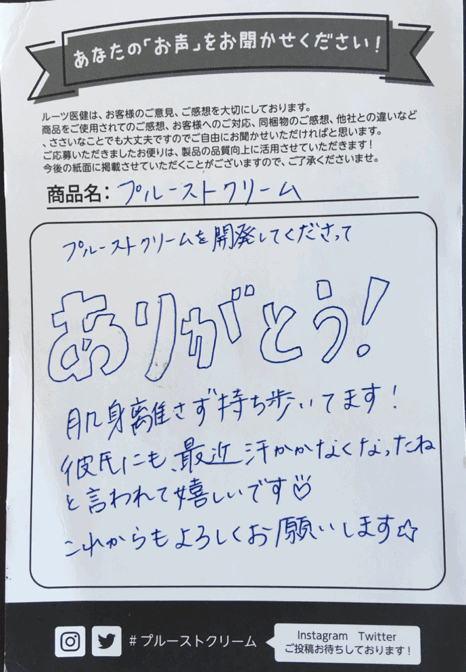 あなたの「お声」をお聞かせください!
ルーツ医健は、お客様のご意見、ご感想を大切にしております。
商品をご使用されてのご感想、お客様へのご対応、同梱物のご感想、他社との違いなど
、ささいなことでも大丈夫ですのでご自由にお聞かせいただければと思います。
ご応募いただきましたお便りは、製品の品質向上に活用させていただきます!
今後の紙面に掲載させていただくことがございますので、ご了承くださいませ。
商品名: プルーストクリーム
プルーストクリームを開発してくださって
ありがとう!
肌身離さず持ち歩いてます!
彼氏にも、最近汗かかなくなったね
と言われて嬉しいです♡
これからもよろしくお願いします☆
#プルーストクリーム
Instagram Twitter
ご投稿お待ちしております!